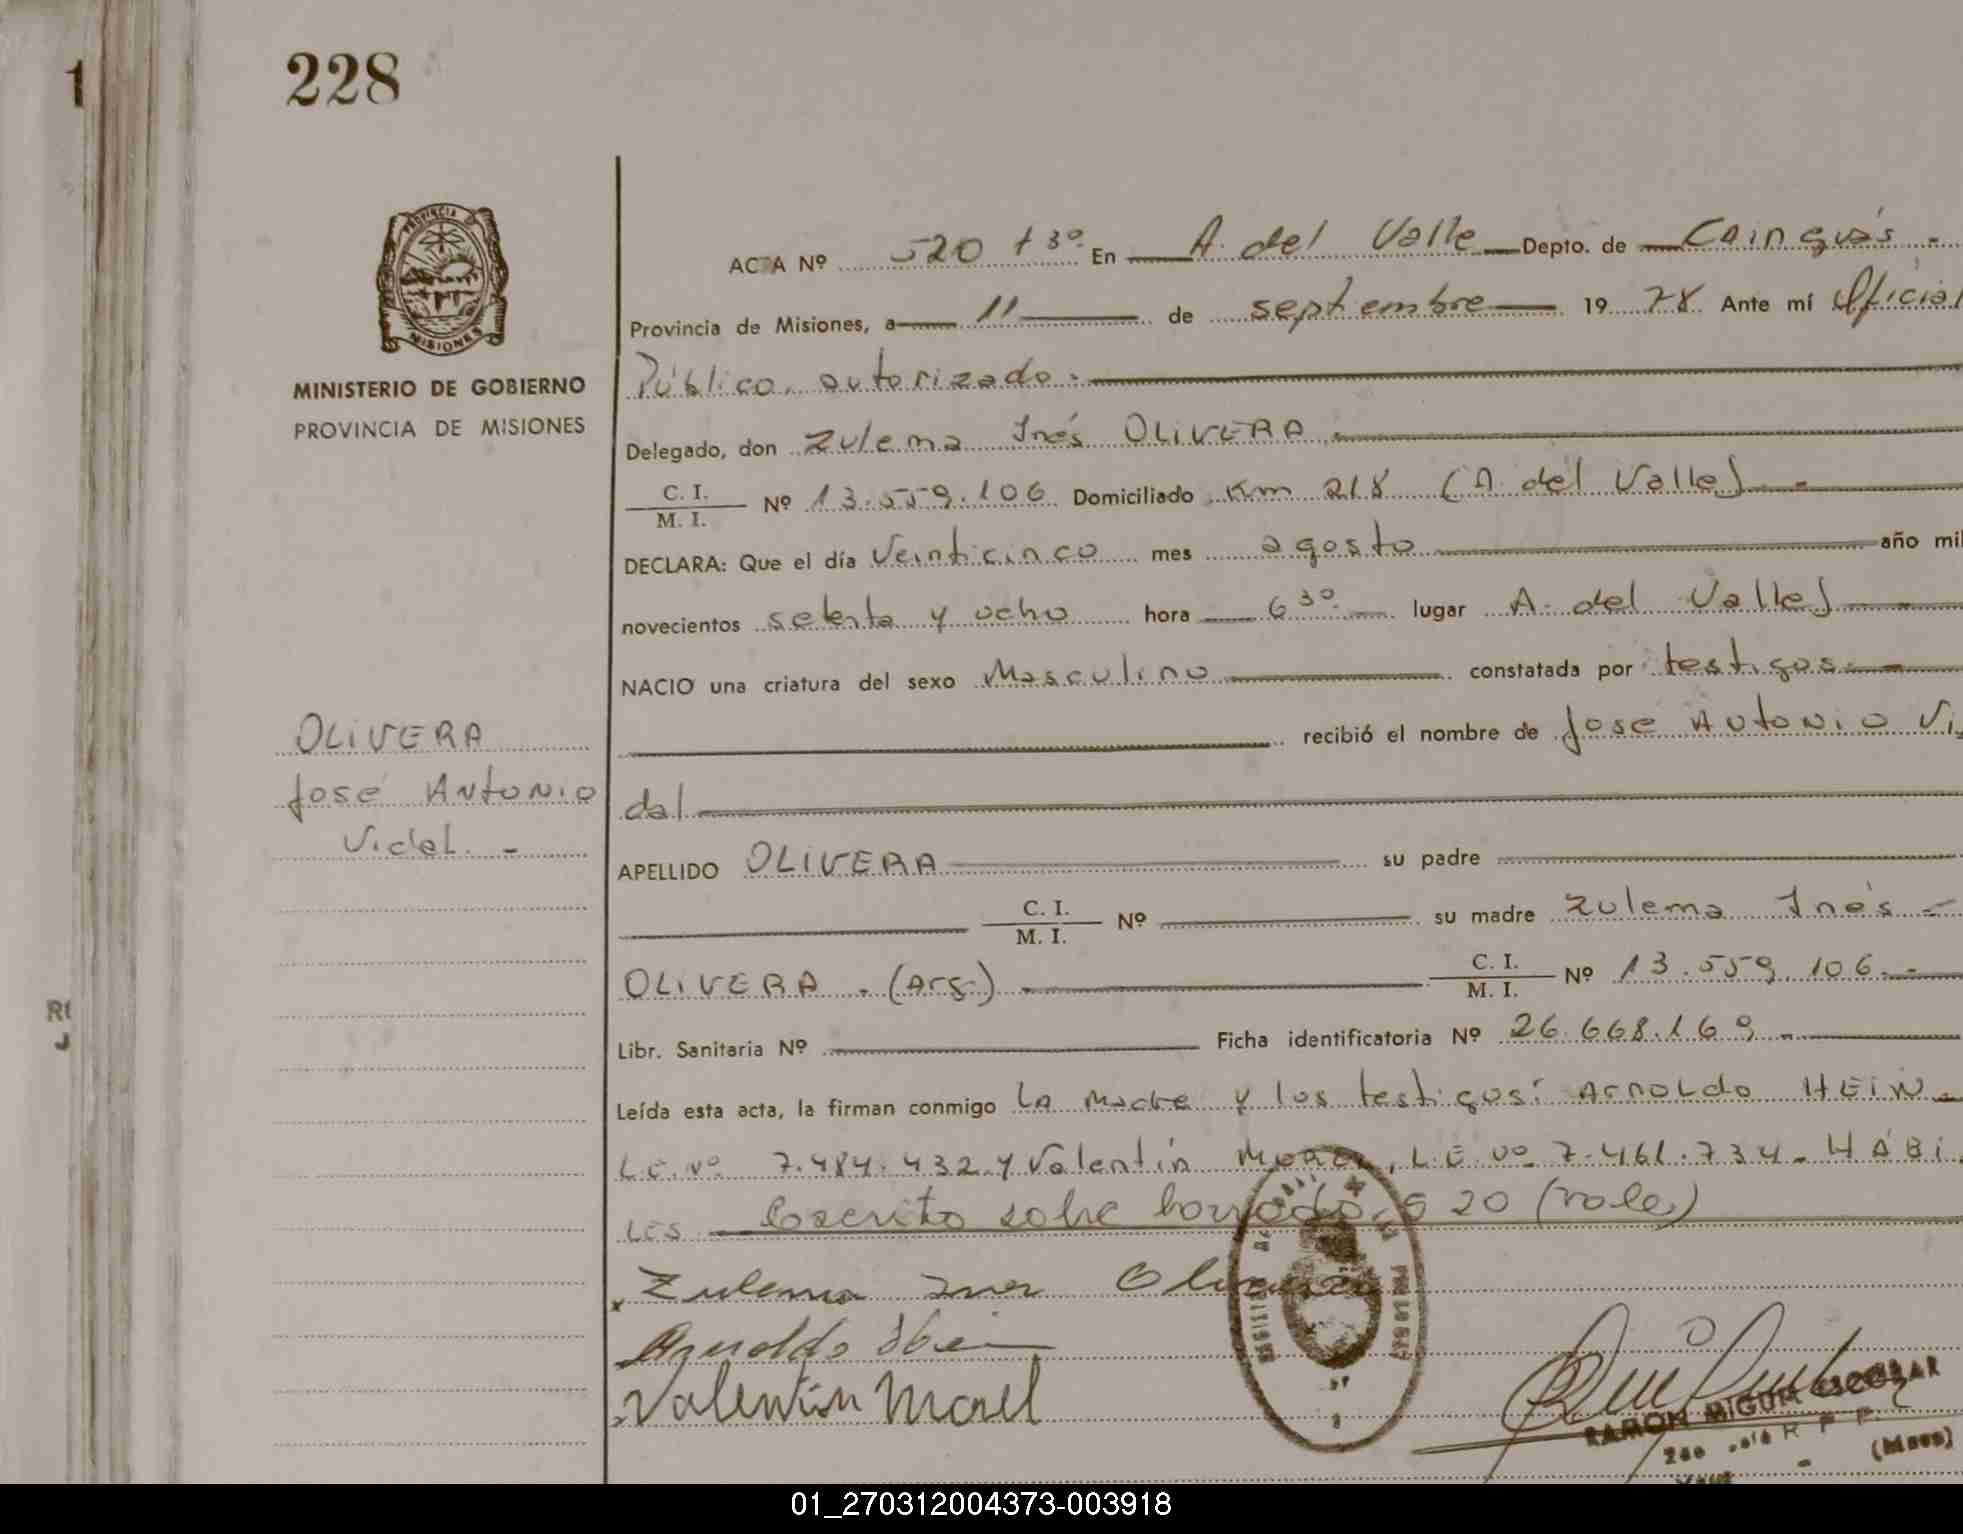 228
1
ACTA Nº 520 t 3º En A. del Valle Depto. de Cainguás -
Provincia de Misiones, a 11 de septiembre 1978 Ante mí Oficial
Público autorizado.
MINISTERIO DE GOBIERNO
PROVINCIA DE MISIONES
Delegado, don Zulema Inés OLIVERA
C. I.
M. I. Nº 13.559.106 Domiciliado Km 218 (A. del Valle) -
DECLARA: Que el día Veinticinco mes agosto año mil
novecientos setenta y ocho hora 6 30 lugar A. del Valle)
NACIO una criatura del sexo Masculino constatada por testigos
recibió el nombre de José Antonio Vi
dal
OLIVERA
José Antonio
Vidal. -
APELLIDO OLIVERA su padre
C. I.
M. I. Nº su madre Zulema Inés -
OLIVERA. (Arg.) C. I.
M. I. Nº 13.559.106. -
Libr. Sanitaria Nº Ficha identificatoria Nº 26.668.169. -
Leída esta acta, la firman conmigo la madre y los testigos: Arnoldo HEIN
L.E. Nº 7.484.432 y Valentín L.E. Nº 7.461.734. HÁBI
LES Escrito sobre borrado, 520 (vale)
Zulema Ines Olivera
Arnoldo Hein
Valentin Morel
PROVINCIA D
MISIONES
RAMON MIGUEL ESCOBAR
(Mnes)
01_270312004373-003918